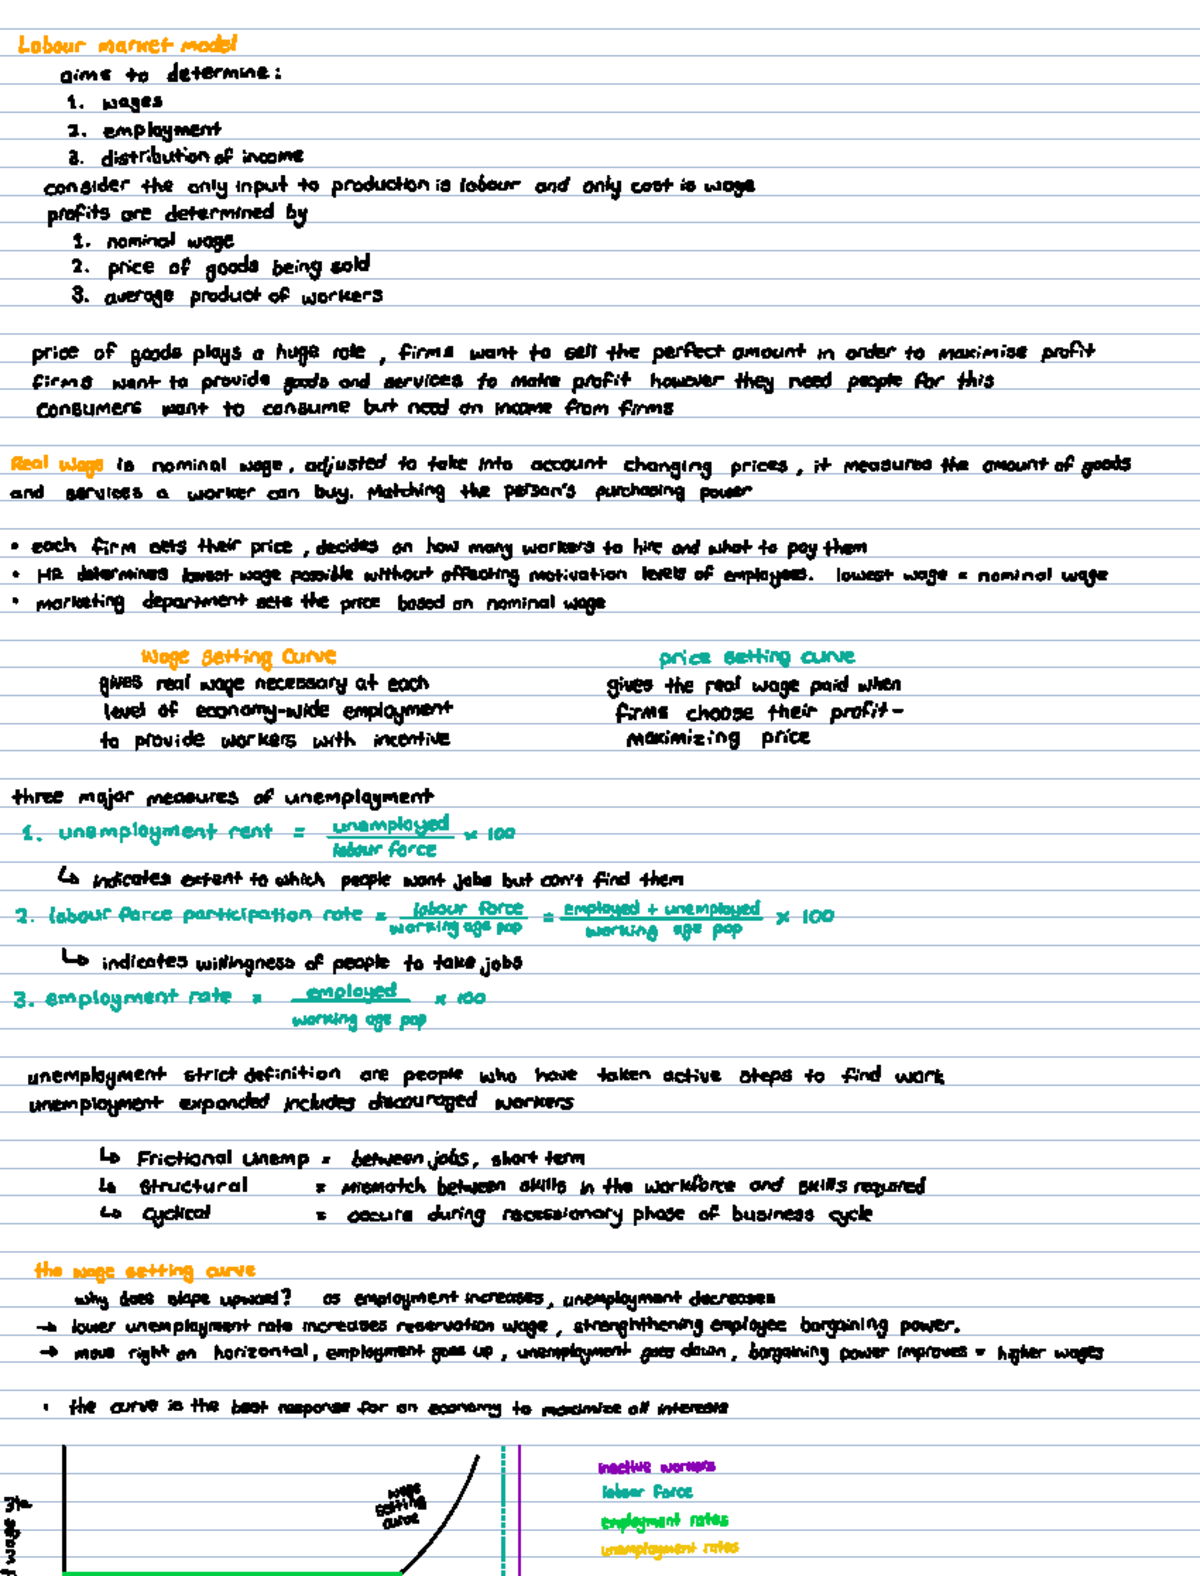 Labour market model
aims to determine:
1. wages
2. employment
3. distribution of income
consider the only input to production is labour and only cost is wage
profits are determined by
1. nominal wage
2. price of goods being sold
3. average product of workers
price of goods plays a huge role, firms want to sell the perfect amount in order to maximise profit
firms want to provide goods and services to make profit however they need people for this
consumers want to consume but need an income from firms
Real wage is nominal wage, adjusted to take into account changing prices, it measures the amount of goods
and services a worker can buy. Matching the person's purchasing power
• each firm sets their price, decides on how many workers to hire and what to pay them
• HR determines lowest wage possible without affecting motivation levels of employees. lowest wage = nominal wage
• marketing department sets the price based on nominal wage
Wage Setting Curve
gives real wage necessary at each
level of economy-wide employment
to provide workers with incentive
price setting curve
gives the real wage paid when
firms choose their profit-
maximizing price
three major measures of unemployment
1. unemployment rent = unemployed / labour force × 100
↳ indicates extent to which people want jobs but can't find them
2. labour force participation rate = labour force / working age pop = employed + unemployed / working age pop × 100
↳ indicates willingness of people to take jobs
3. employment rate = employed / working age pop × 100
unemployment strict definition are people who have taken active steps to find work
unemployment expanded includes discouraged workers
↳ Frictional Unemp = between jobs, short term
↳ Structural = mismatch between skills in the workforce and skills required
↳ Cyclical = occurs during recessionary phase of business cycle
the wage setting curve
why does slope upward? as employment increases, unemployment decreases
→ lower unemployment rate increases reservation wage, strenghthening employee bargaining power.
→ move right on horizontal, employment goes up, unemployment goes down, bargaining power improves = higher wages
• the curve is the best response for an economy to maximize all interests
wage
setting
curve
inactive workers
labour force
employment rates
unemployment rates
wage